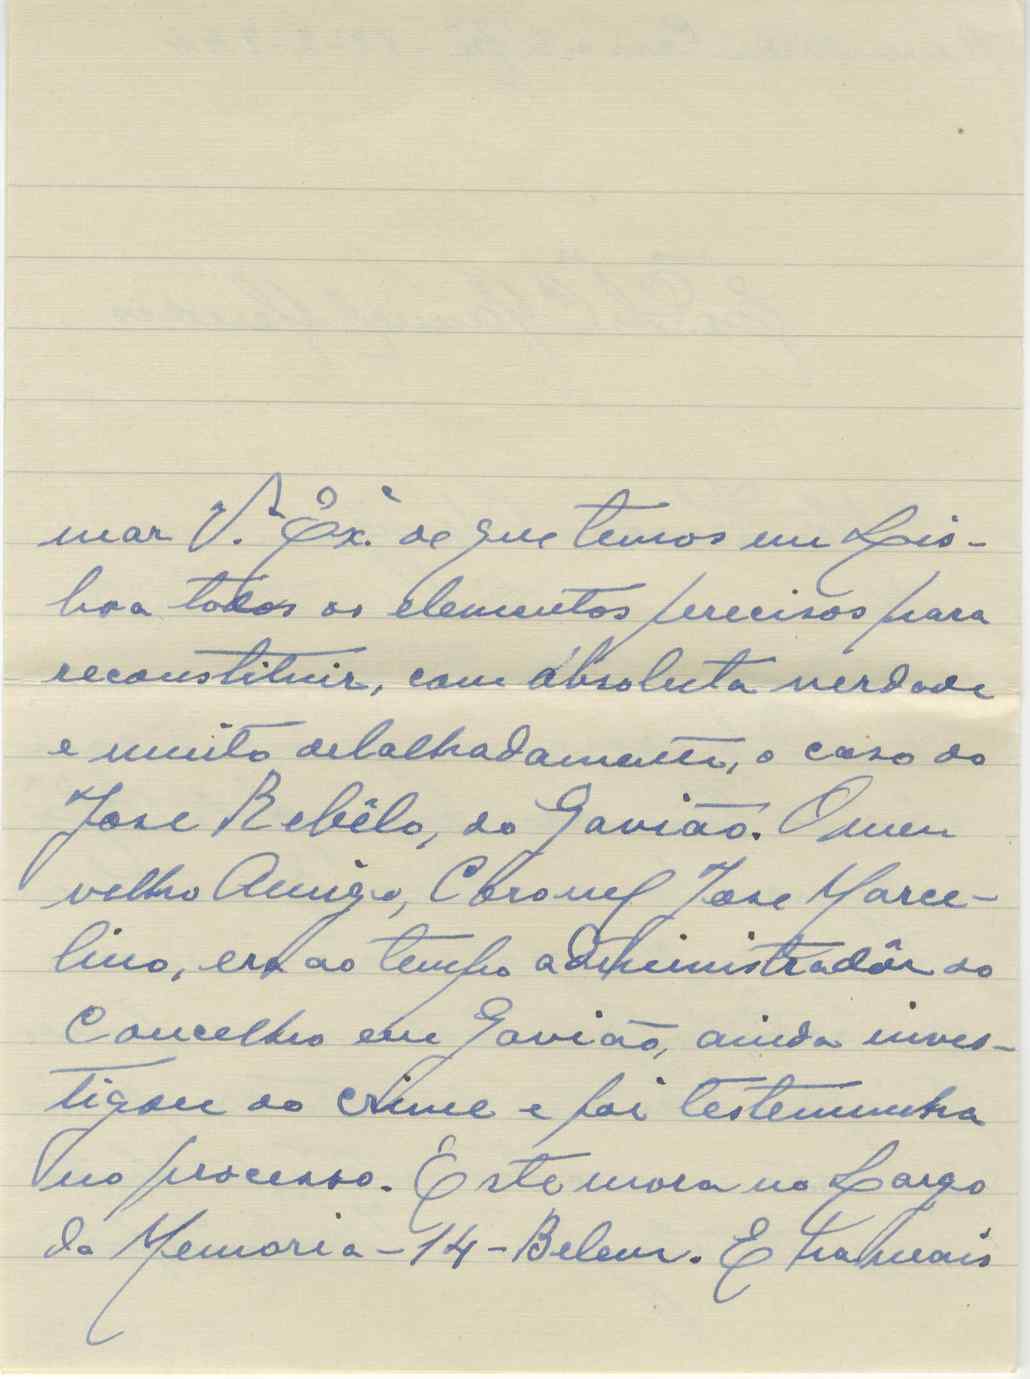 mar V. Êx.ª de que temos em Lis-
boa todos os elementos precisos para
reconstituir, com absoluta verdade
e muito detalhadamente, o caso do
Jose Rebêlo, do Gavião. O meu
velho Amigo, Coronel Jose Marce-
lino, era ao tempo administradôr do
Concelho em Gavião, ainda inves-
tigou do crime e foi testemunha
no processo. Este mora no Largo
da Memoria - 14 - Belem. E ha mais